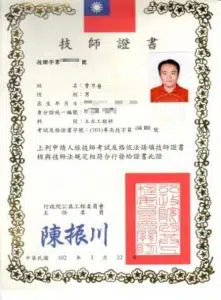 技師證書
技證字第
姓名
性別：男
出生年月日
身分證統一編號
科別：土木工程科
考試及格證書字號：(101)專高技字第 號
上列申請人經技師考試及格依法請領技師證書
核與技師法規定相符合行發給證書此證
行政院公共工程委員會
主任委員
陳振川
中華民國 102 年 1 月 22 日